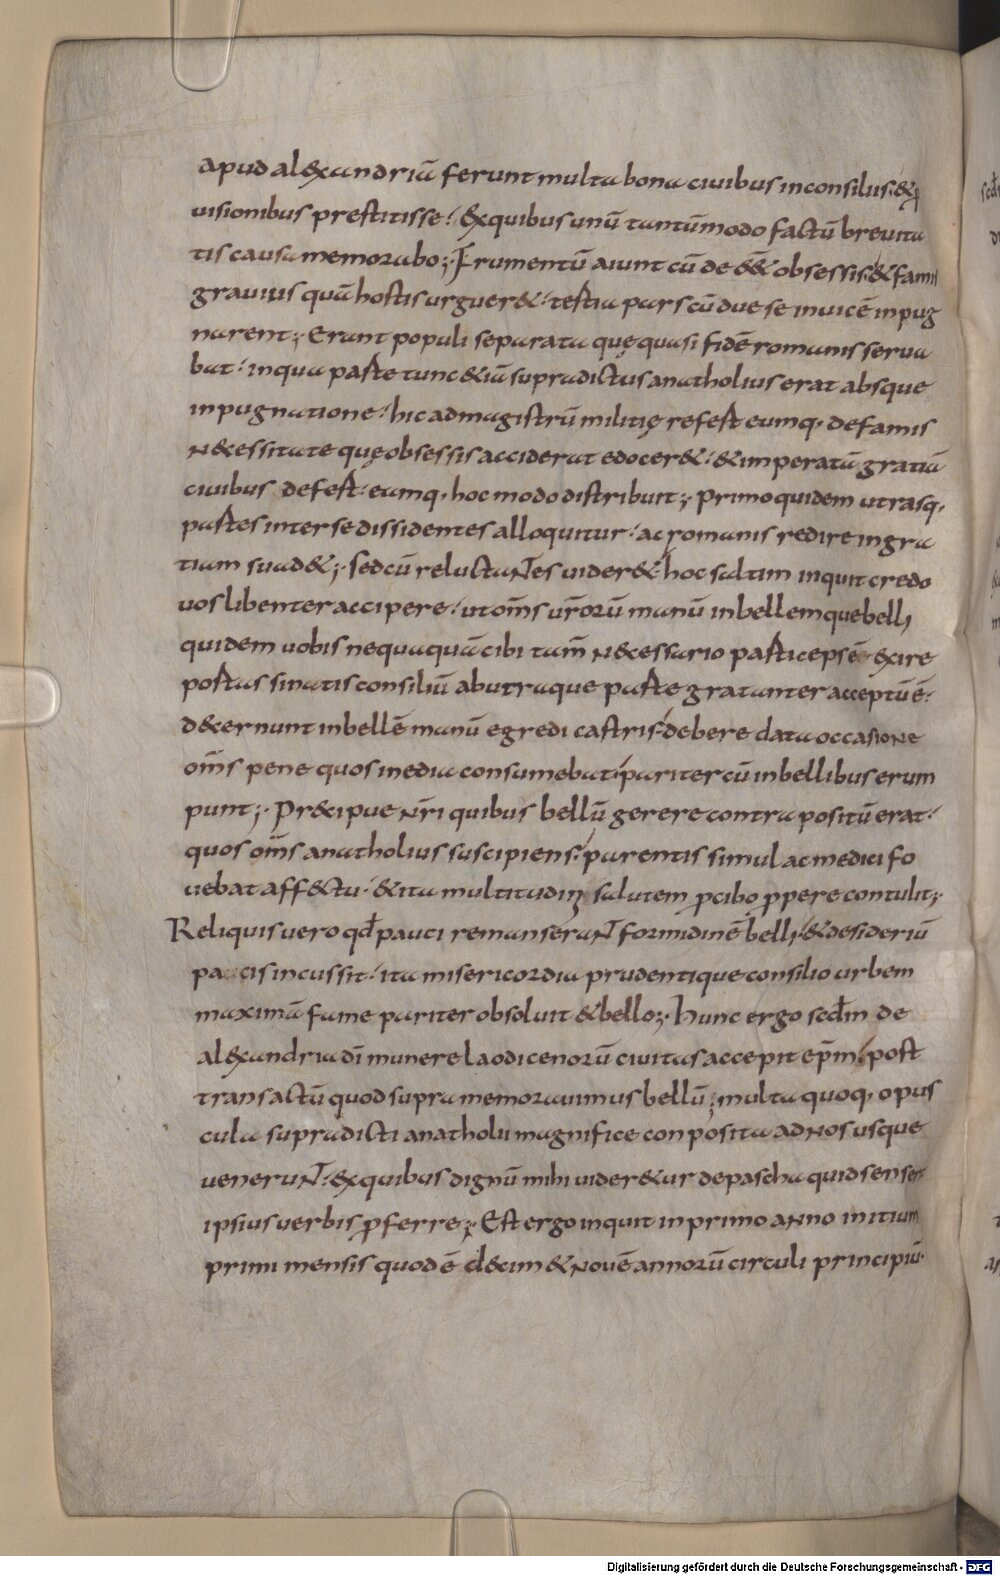 apud al&xandriā ferunt multa bona ciuibus in consiliis & ꝓ
uisionibus prestitisse. &xquibus unū tantūmodo factū breuita
tis causa memorabo; Frumentū aiunt cū deē& obsessis & famis
grauius quā hostis urguer&. tertia pars cū duę se inuicē inpug
narent; Erant populi separata quę quasi fidē romanis serua
bat. in qua parte tunc &iā supradictus anatholius erat absque
inpugnatione. hic ad magistrū militię refert eumq, de famis
n&cessitate quę obsessis acciderat edocer&. & imperatā gratiā
ciuibus defert. eamq, hoc modo distribuit; Primo quidem utrasq,
partes inter se dissidentes alloquitur. ac romanis redire in gra
tiam suad&; sed cū reluctaNTes uider& hoc saltim inquit credo
uos libenter accipere. ut om̄s ur̄orū manū inbellem que belli
quidem uobis nequaquā cibi tam̄ n&cessario particeps ē &xire
portas sinatis consiliū ab utraque parte gratanter acceptū ē.
d&cernunt inbellē manū egredi castris debere data occasione
om̄s pene quos inedia consumebat pariter cū inbellibus erum
punt; Pr&cipue nr̄i quibus bellū gerere contra positū erat.
quos om̄s anatholius suscipiens. parentis simul ac medici fo
uebat aff&ctu. & ita multitudini salutem ꝓ cibo ꝓpere contulit;
Reliquis uero qd̄ pauci remanseraNT formidinē belli & desideriū
pacis incussit. ita misericordia prudentique consilio urbem
maximā fame pariter obsoluit & bello; Hunc ergo scd̄m de
al&xandria dī munere laodicenorū ciuitas accepit ep̄m. post
transactū quod supra memorauimus bellū; multa quoq, opus
cula supradicti anatholii magnifice conposita ad nos usque
ueneruNT. &xquibus dignū mihi uider&ur de pascha quid senser
ipsius uerbis ꝓferre; Est ergo inquit in primo anno initium
primi mensis quod ē d&cim & nouē annorū circuli principiū.
Digitalisierung gefördert durch die Deutsche Forschungsgemeinschaft - DFG